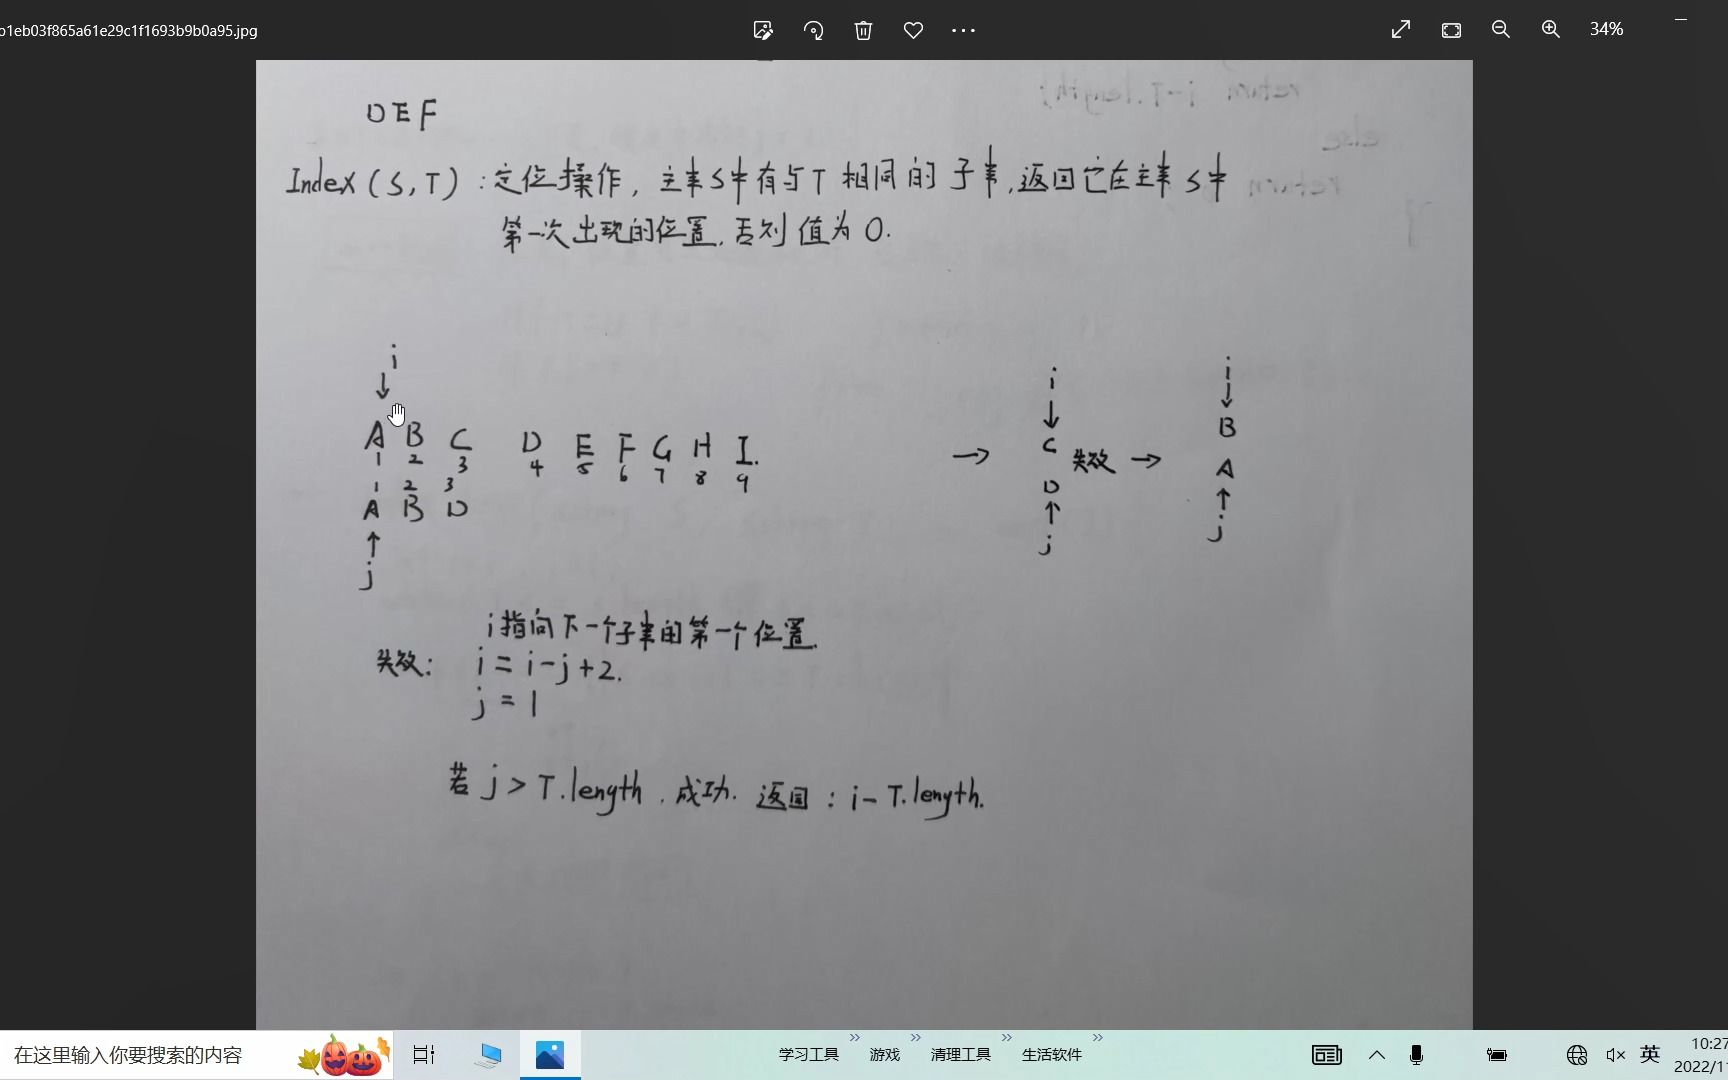 b1eb03f865a61e29c1f1693b9b0a95.jpg
34%
DEF
Index(S,T):定位操作,主串S中有与T相同的子串,返回它在主串S中
第一次出现的位置,否则值为0.
i
↓
A B C D E F G H I.
1 2 3 4 5 6 7 8 9
1 2 3
A B D
↑
j
→
i
↓
C
失效
D
↑
j
→
i
↓
B
A
↑
j
i指向下一个子串的第一个位置.
失效: i=i-j+2.
j=1
若j>T.length,成功.返回:i-T.length.
return i-T.length;
else
return
在这里输入你要搜索的内容
学习工具 » 游戏 » 清理工具 » 生活软件 »
英
10:27
2022/1